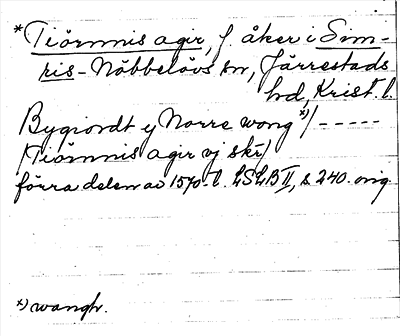 * Tiörnnis agir, f. åker i Sim-
ris-Nöbbelövs sn, Järrestads
hd, Krist. l.
Bygiordt y Norre wong x) / -----
/Tiörnnis agir vj skr/
förra delen av 1570-t. LSLB II, s. 240. orig.
x) wangh.